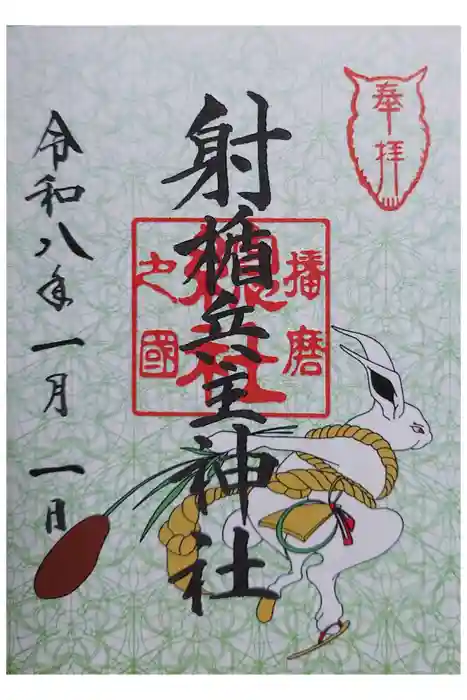 奉拝
射楯兵主神社
播磨
之國
総社
令和八年一月一日